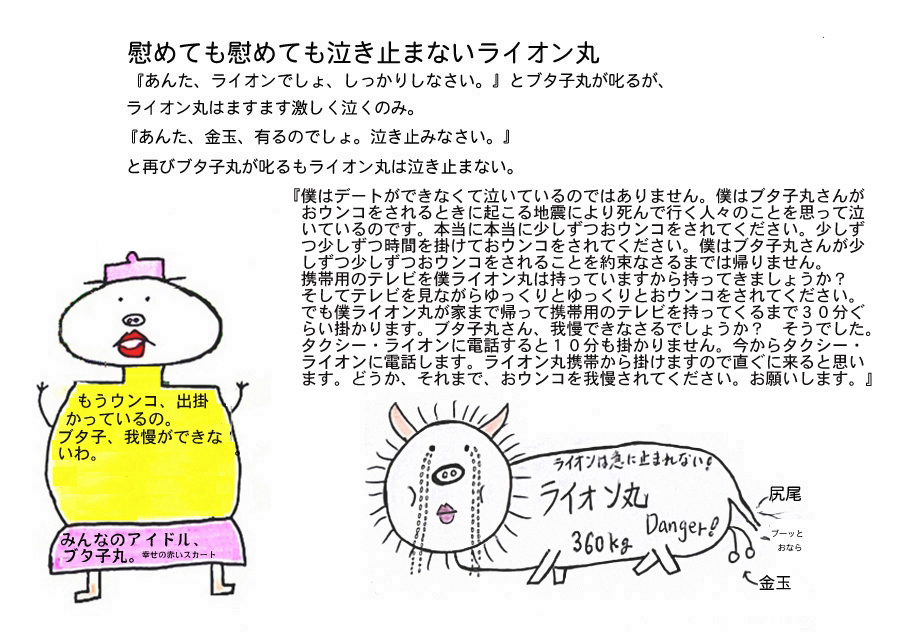 慰めても慰めても泣き止まないライオン丸
『あんた、ライオンでしょ、しっかりしなさい。』とブタ子丸が叱るが、
ライオン丸はますます激しく泣くのみ。
『あんた、金玉、有るのでしょ。泣き止みなさい。』
と再びブタ子丸が叱るもライオン丸は泣き止まない。
『僕はデートができなくて泣いているのではありません。僕はブタ子丸さんが
おウンコをされるときに起こる地震により死んで行く人々のことを思って泣
いているのです。本当に本当に少しずつおウンコをされてください。少しず
つ少しずつ時間を掛けておウンコをされてください。僕はブタ子丸さんが少
しずつ少しずつおウンコをされることを約束なさるまでは帰りません。
携帯用のテレビを僕ライオン丸は持っていますから持ってきましょうか？
そしてテレビを見ながらゆっくりとゆっくりとおウンコをされてください。
でも僕ライオン丸が家まで帰って携帯用のテレビを持ってくるまで３０分ぐ
らい掛かります。ブタ子丸さん、我慢できなさるでしょうか？　そうでした。
タクシー・ライオンに電話すると１０分も掛かりません。今からタクシー・
ライオンに電話します。ライオン丸携帯から掛けますので直ぐに来ると思い
ます。どうか、それまで、おウンコを我慢されてください。お願いします。』
もうウンコ、出掛
かっているの。
ブタ子、我慢ができな
いわ。
みんなのアイドル、
ブタ子丸。幸せの赤いスカート
ライオンは急に止まれない！
ライオン丸
Danger!
360kg
尻尾
ブーッと
おなら
金玉